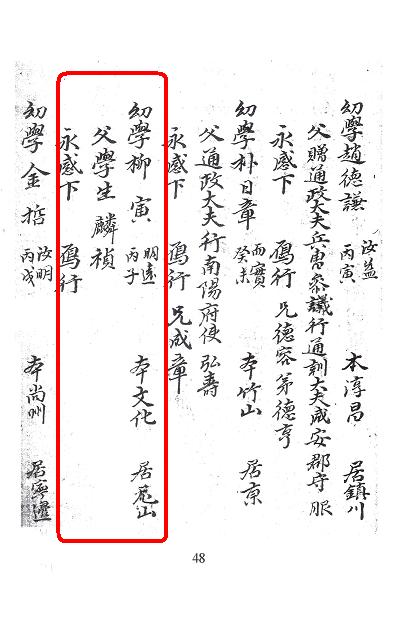 幼學趙德謙 汝益 丙寅 本淳昌 居鎮川
父贈通政大夫兵曹參議行通訓大夫咸安郡守服
永感下 鴈行 兄德容弟德亨
幼學朴日章 而實 癸未 本竹山 居京
父通政大夫行南陽府使弘壽
永感下 鴈行 兄成章
幼學柳寅 明遠 丙子 本文化 居山
父學生麟禎
永感下 鴈行
幼學金哲 汝明 丙戌 本尚州 居寧邊
48